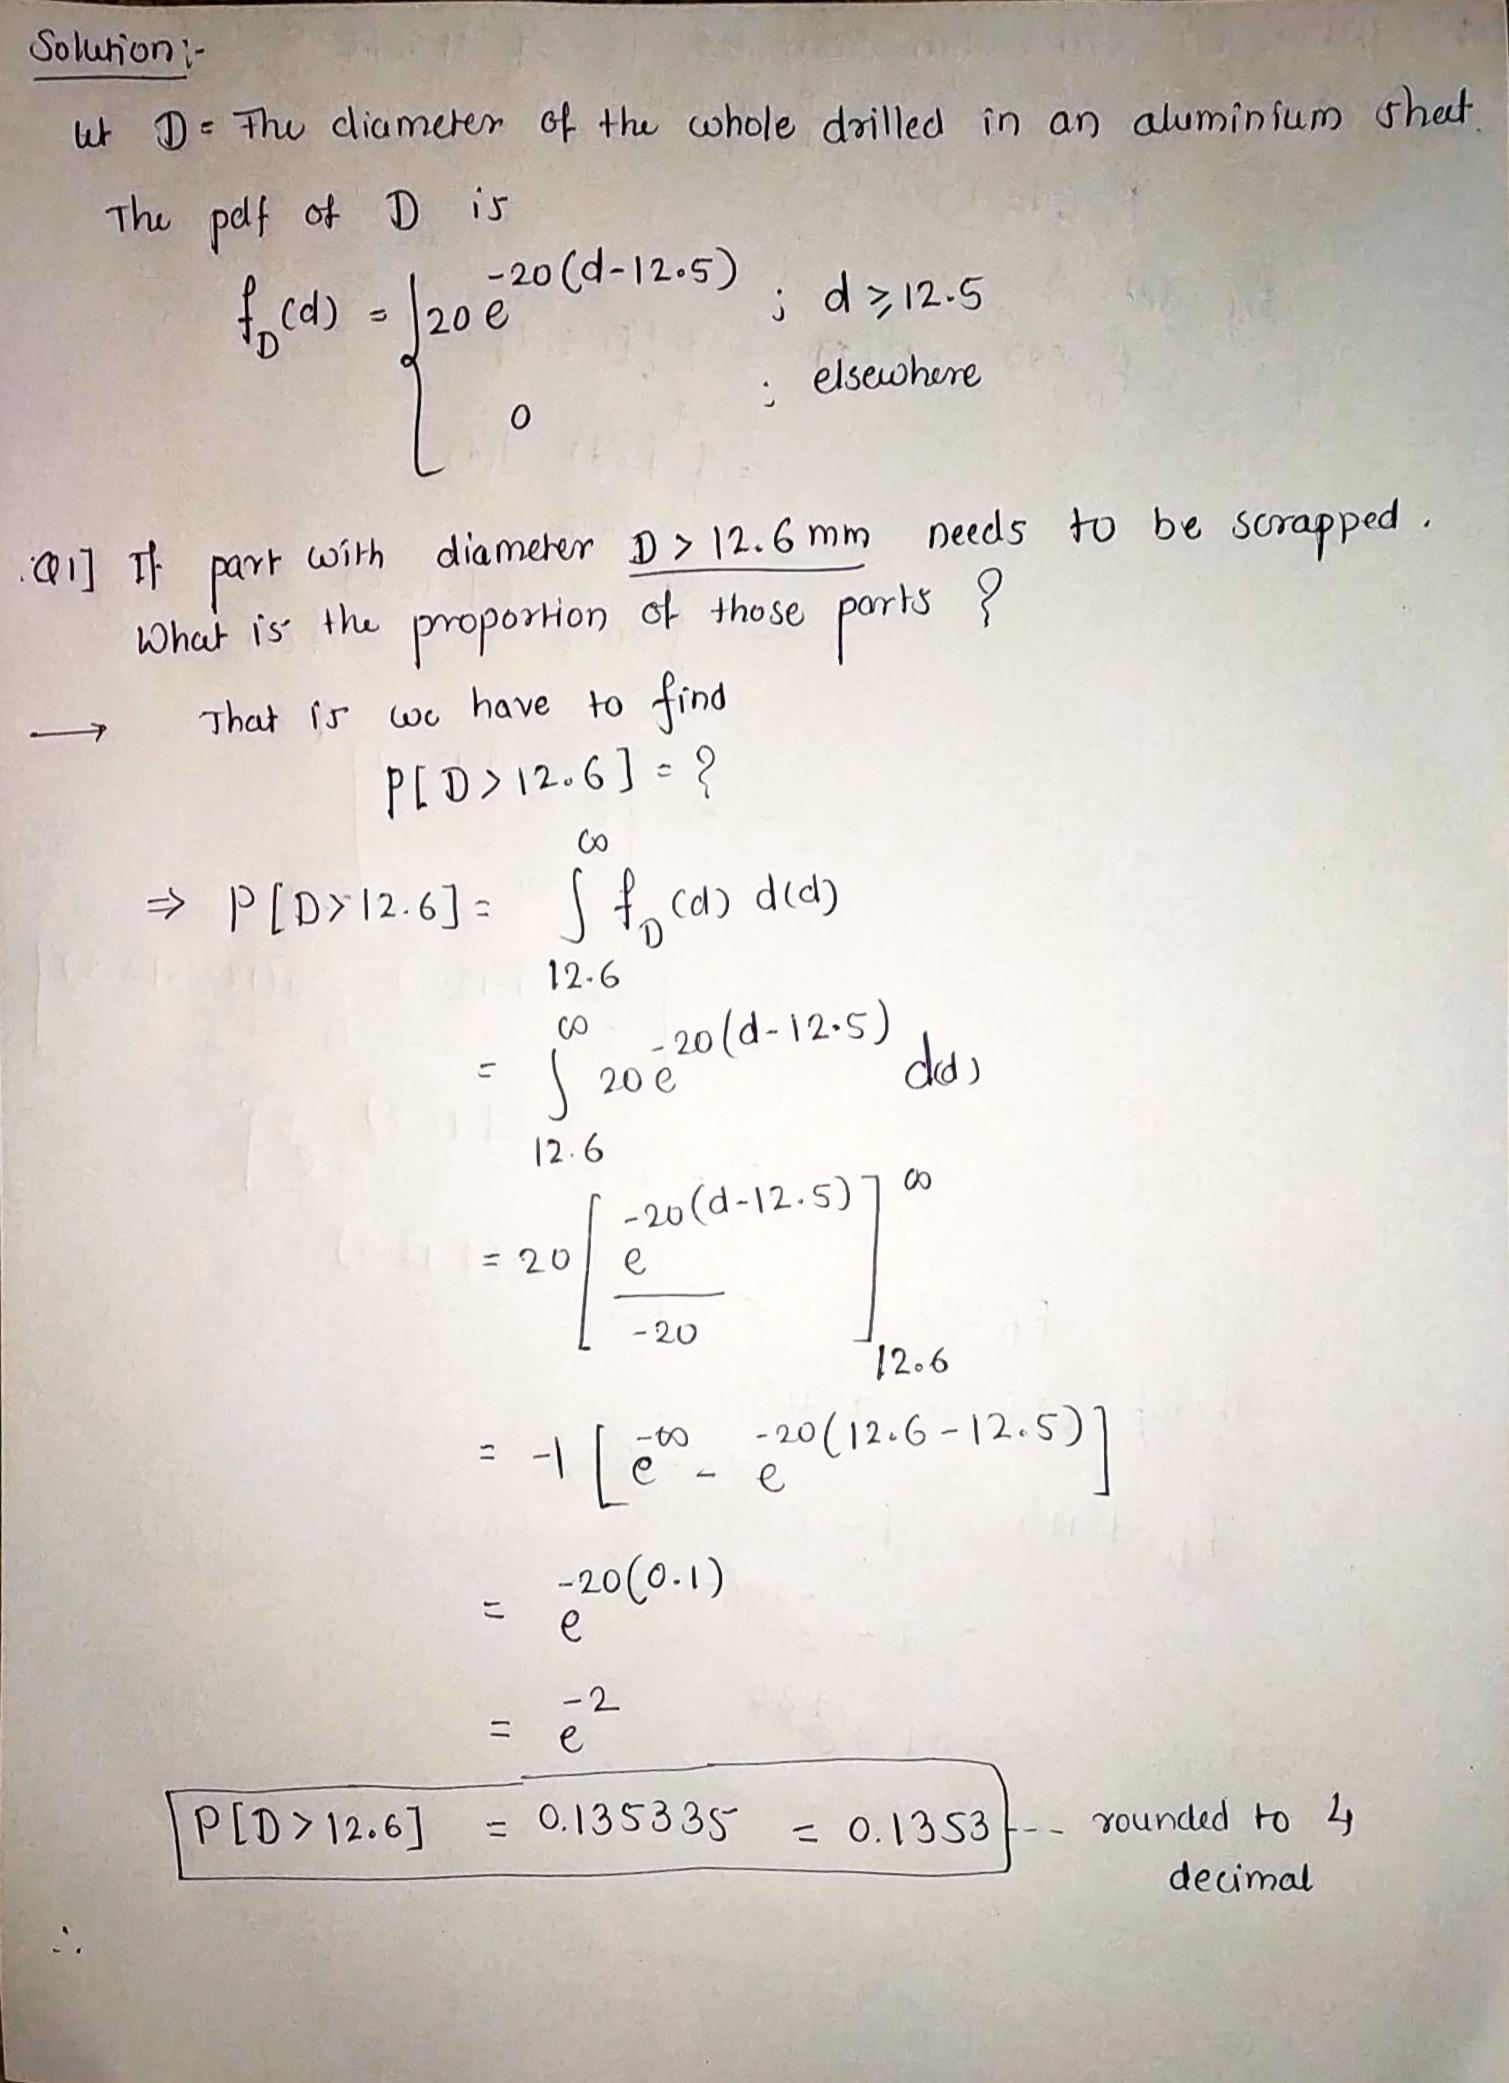 Solution :-
let D = The diameter of the whole drilled in an aluminium sheet.
The pdf of D is
f_D(d) = { 20 e^{-20(d-12.5)} ; d ≥ 12.5
0 ; elsewhere
Q1] If part with diameter D > 12.6 mm needs to be scrapped.
What is the proportion of those parts ?
→ That is we have to find
P[D > 12.6] = ?
⇒ P[D > 12.6] = ∫_{12.6}^{∞} f_D(d) d(d)
= ∫_{12.6}^{∞} 20 e^{-20(d-12.5)} d(d)
= 20 [ e^{-20(d-12.5)} / -20 ]_{12.6}^{∞}
= -1 [ e^{-∞} - e^{-20(12.6-12.5)} ]
= e^{-20(0.1)}
= e^{-2}
P[D > 12.6] = 0.135335 = 0.1353 --- rounded to 4
decimal
∴